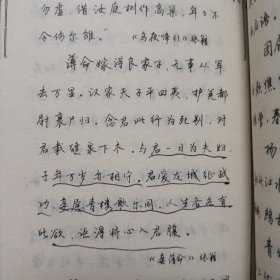 勿虚,借汝庭树作高巢,年々不
令伤尔雏。 《乌夜啼引》张籍
薄命嫁得良家子,无事从军
去万里,汉家天子平四夷,护羌都
尉裹尸归。念君此行为死别,对
君裁缝泉下衣。与君一日为夫妇,
千年万岁亦相守。君爱龙城征战
功,妾愿青楼歌乐同。人生各各有
所欲,讵得将心入君腹。
《妾薄命》张籍
因
杨